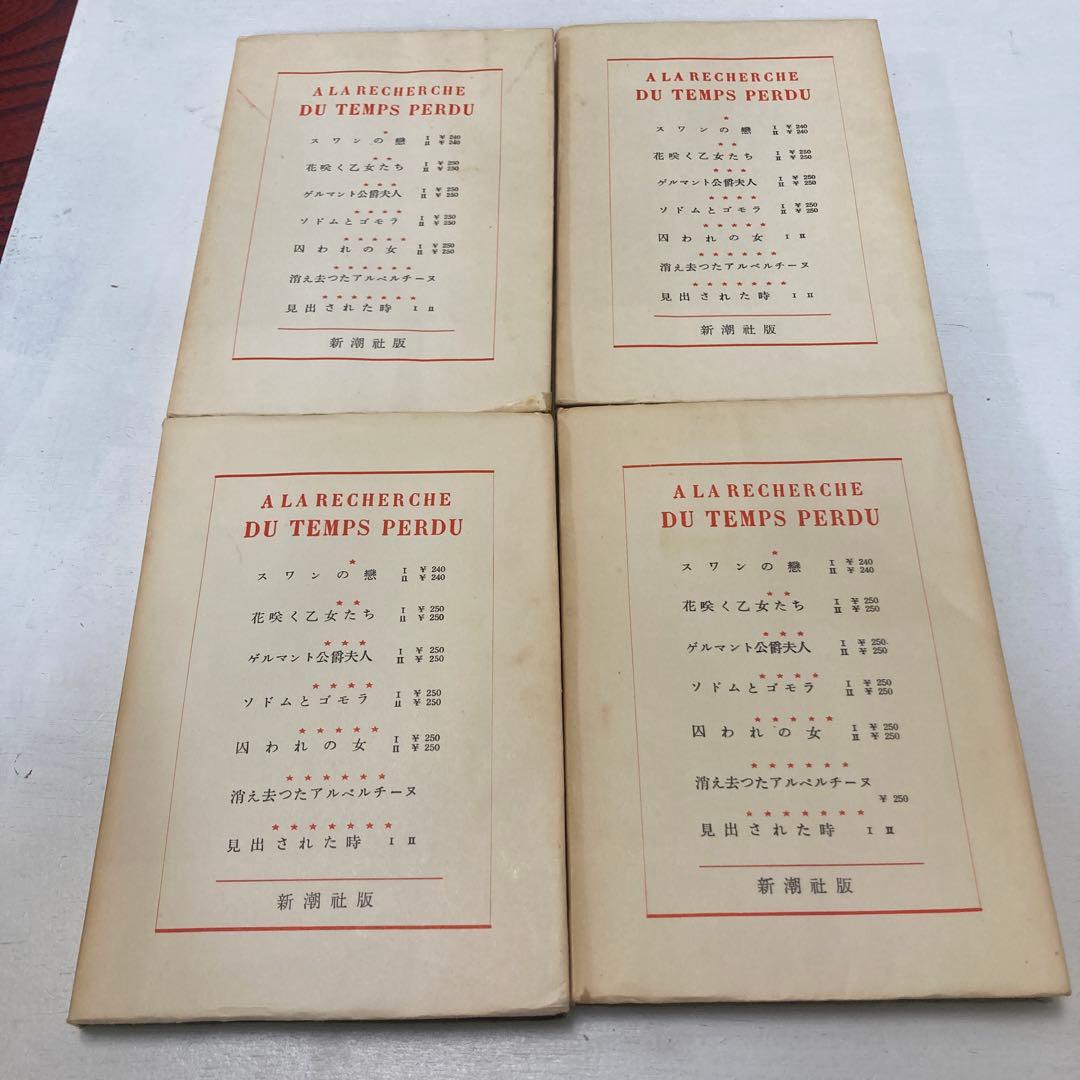 A LA RECHERCHE
DU TEMPS PERDU
★
スワンの戀 I ¥240
II ¥240
★★
花咲く乙女たち I ¥250
II ¥250
★★★
ゲルマント公爵夫人 I ¥250
II ¥250
★★★★
ソドムとゴモラ I ¥250
II ¥250
★★★★★
囚われの女 I ¥250
II ¥250
★★★★★★
消え去つたアルベルチーヌ
★★★★★★★
見出された時 I II
新潮社版
A LA RECHERCHE
DU TEMPS PERDU
★
スワンの戀 I ¥240
II ¥240
★★
花咲く乙女たち I ¥250
II ¥250
★★★
ゲルマント公爵夫人 I ¥250
II ¥250
★★★★
ソドムとゴモラ I ¥250
II ¥250
★★★★★
囚われの女 I II
★★★★★★
消え去つたアルベルチーヌ
★★★★★★★
見出された時 I II
新潮社版
A LA RECHERCHE
DU TEMPS PERDU
★
スワンの戀 I ¥240
II ¥240
★★
花咲く乙女たち I ¥250
II ¥250
★★★
ゲルマント公爵夫人 I ¥250
II ¥250
★★★★
ソドムとゴモラ I ¥250
II ¥250
★★★★★
囚われの女 I ¥250
II ¥250
★★★★★★
消え去つたアルベルチーヌ
★★★★★★★
見出された時 I II
新潮社版
A LA RECHERCHE
DU TEMPS PERDU
★
スワンの戀 I ¥240
II ¥240
★★
花咲く乙女たち I ¥250
II ¥250
★★★
ゲルマント公爵夫人 I ¥250
II ¥250
★★★★
ソドムとゴモラ I ¥250
II ¥250
★★★★★
囚われの女 I ¥250
II ¥250
★★★★★★
消え去つたアルベルチーヌ
¥250
★★★★★★★
見出された時 I II
新潮社版